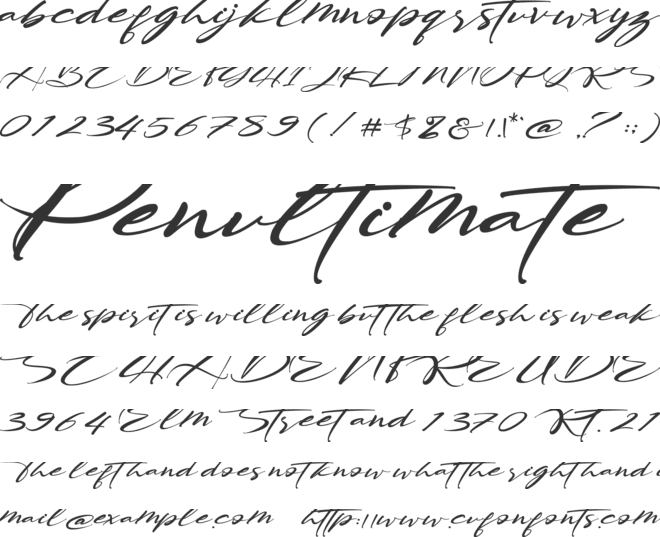 abcdefghijklmnopqrstuvwxyz
ABCDEFGHIJKLMNOPQRS
0123456789(/#$%&|!*@.,?:;)
Penultimate
The spirit is willing but the flesh is weak
SCHADENFREUDE
3964 Elm Street and 1370 Rt. 21
The left hand does not know what the right hand
mail@example.com http://www.cufonfonts.com